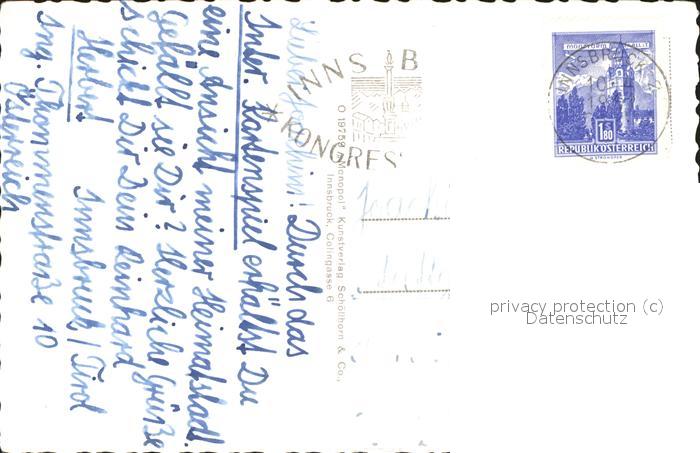 Lieber Joachim! Durch das
Inter. Kartenspiel erhältst Du
eine Ansicht meiner Heimatstadt.
Gefällt sie Dir? Herzliche Grüße
schickt Dir Dein Reinhard
Herbert
Innsbruck / Tirol
Ing. Thommenstraße 10
Österreich
INNSB
KONGRES
O 19759 "Monopol" Kunstverlag Schöllhorn & Co.,
Innsbruck, Colingasse 6
INNSBRUCK 2
1S80
REPUBLIK ÖSTERREICH
privacy protection (c)
Datenschutz